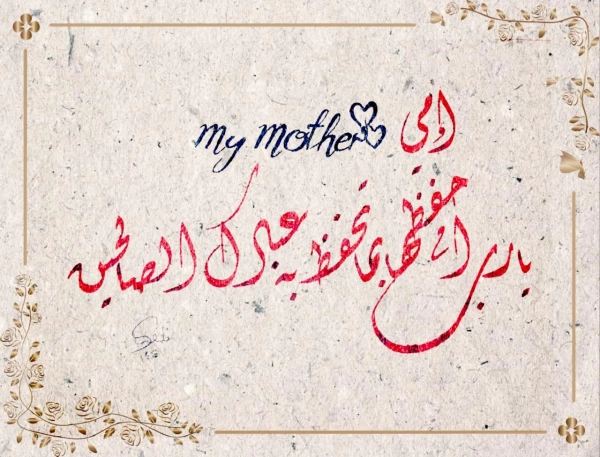 أمي my mother
يارب احفظها بما تحفظ به عبادك الصالحين